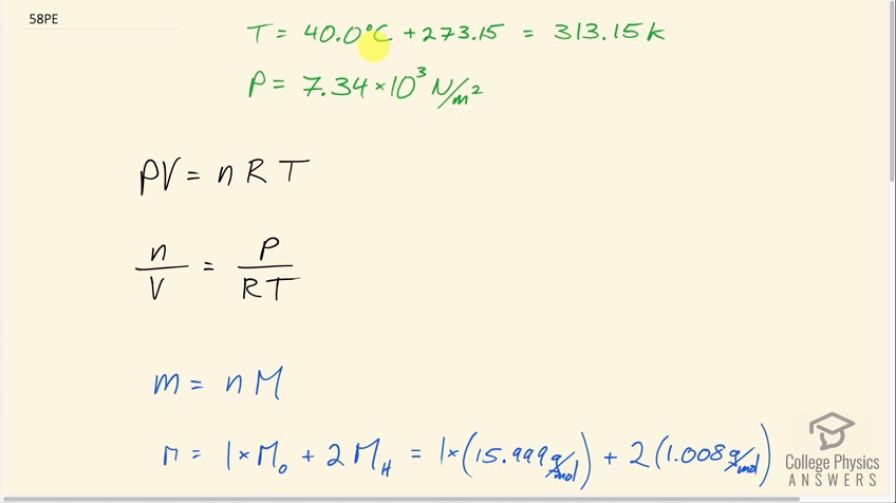 58PE
T = 40.0°C + 273.15 = 313.15 k
P = 7.34 × 10³ N/m²
PV = n R T
n/V = P/RT
m = n M
M = 1 × M_O + 2 M_H = 1 × (15.999 g/mol) + 2 (1.008 g/mol)
College Physics
ANSWERS